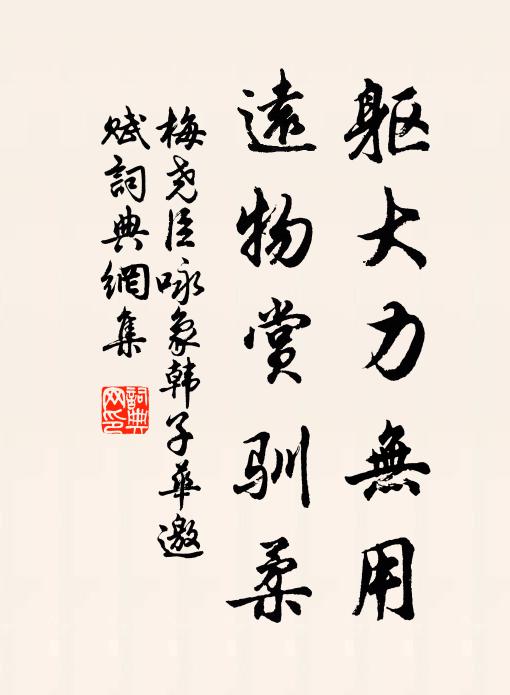 躯大力無用
遠物賞馴柔
梅尧臣咏象韩子華邀
賦詞典網集
詞典
网印